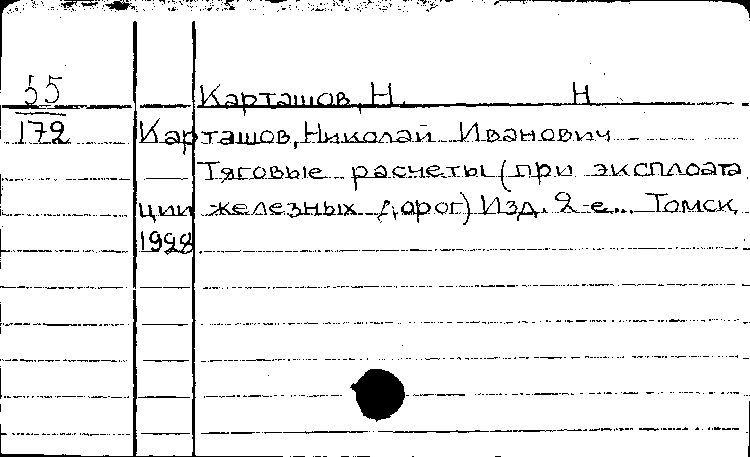 55 Карташов, Н. Н
172 Карташов, Николай Иванович
Тяговые расчеты (при эксплоата
ции железных дорог) Изд. 2-е... Томск,
1928